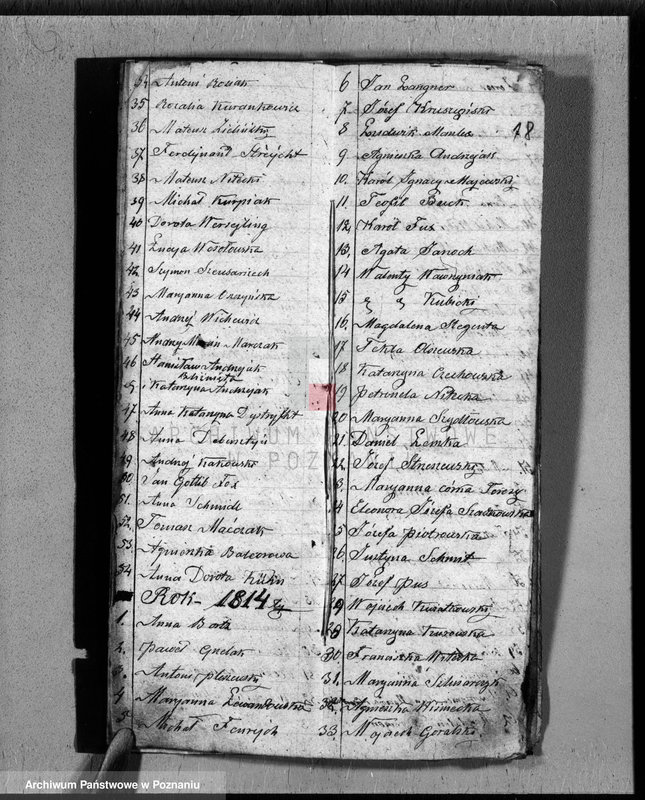 34 Antoni Rosiak
35 Rozalia Kwiankowia
36 Mateusz Zieliński
37 Ferdynand Strejcht
38 Mateusz Nitecki
39 Michał Kurpniak
40 Dorota Wersejling
41 Łucja Wesołowska
42 Szymon
43 Maryanna Czczyńska
44 Andrzej Wichewicz
45 Andrzej Marczak
46 Stanisław Andryjak
Bliznięta
Katarzyna Andryjak
47 Anna Katarzyna Dystrycht
48 Anna
49 Andrzej Krakowski
50 Jan Gotlib Fox
51. Anna Schmidt
52. Tomasz Maćczak
53. Agnieszka Balcerowa
54. Anna Dorota Kühn
Rok 1814
1. Anna Bortz
2. Paweł Gnelak
3. Antoni
4 Maryanna Lewandowska
5 Michał
6 Jan Langner
7. Józef Kruszyński
8 Ludwik Manka
18
9. Agnieszka Andrzejak
10. Karól Ignacy Majewski
11. Teofil Buck
12. Karól Fux
13. Agata Janoch
14 Walenty Wawrzyniak
15 Kubicki
16. Magdalena Stegenta
17. Tekla Olszewska
18 Katarzyna Czechowska
19 Petronela Nitecka
20 Maryanna Szydłowska
21. Daniel Lemka
22. Józef Straszewski
3 Maryanna córna Terezy
4 Eleonora Józefa Szatkowska
5 Józefa Piotrowska
26 Justyna Schmit
27 Józef Pus
29 Wojciech Kwiatkowski
28 Katarzyna Kurowska
30 Franciszka Witecka
31. Maryanna Szlwarczyk
32. Agnieszka Niemiecka
33. Wojciech Goralski
ARCHIWUM PAŃSTWOWE
W POZNANIU
Archiwum Państwowe w Poznaniu